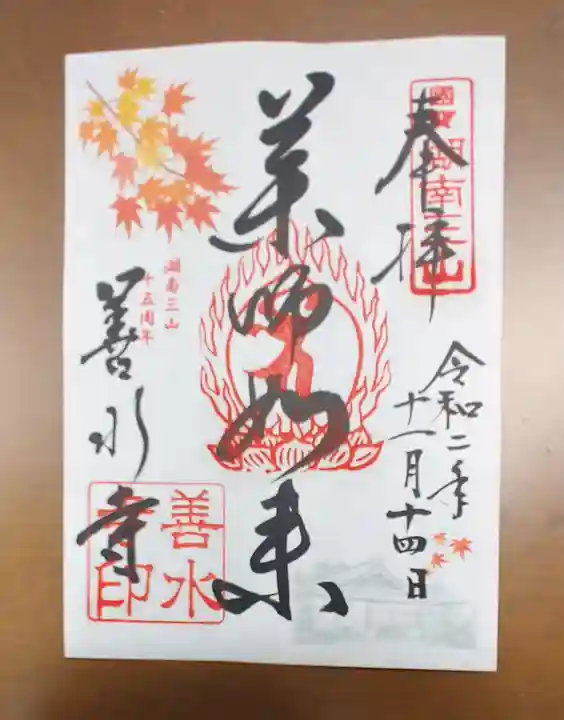 奉拝
國宝 湖南三山
令和二年
十一月十四日
薬師如来
湖南三山
十五周年
善水寺
善水
寺印